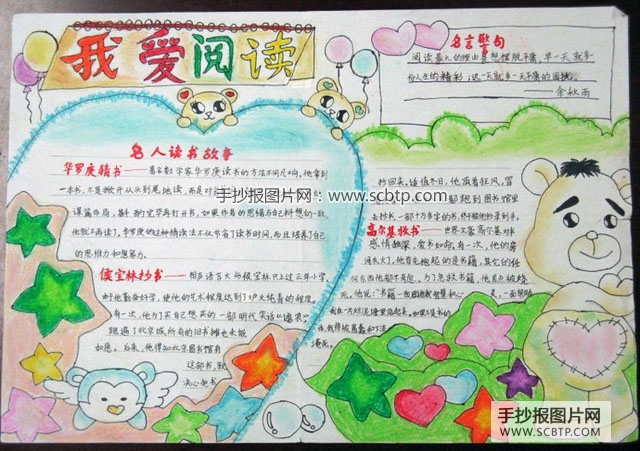 我爱阅读
名言警句
阅读最大的理由是想摆脱平庸，早一天就多
一份人生的精彩；迟一天就多一天平庸的困扰。
余秋雨
名人读书故事
华罗庚猜书——著名数学家华罗庚读书的方法不同凡响。他拿到
一本书，不是翻开从头到尾地读，而是对
手抄报图片网：www.scbtp.com
谋篇布局，斟酌完毕再打开书，如果作者的思路与自己料想的一致，
他就不再读了。华罗庚的这种猜读法不仅节省了读书时间，而且培养了自己
的思维力和想象力。
侯宝林抄书——相声语言大师侯宝林只上过三年小学，
由于他勤奋好学，使他的艺术程度达到了炉火纯青的程度。
有一次，他为了买自己想买的一部明代笑话《谑浪》
跑遍了北京城所有的旧书摊也未能
如愿。后来，他得知北京图书馆有
这部书，就
决心把书
抄回来。适值冬日，他顶着狂风，冒
都跑到图书馆里
去抄书，一部十万多字的书，终于被他抄录到手。
高尔基救书——世界文豪高尔基对书
感情独深，爱书如命。有一次，他的房
间失火了，他首先抱起的是书籍，其它的任
何东西他都不考虑。为了抢救书籍，他差点被烧
死。他说："书籍一面启示着我的智慧和心灵，一面帮助
我在一片烂泥塘里站起来，如果不是书的
话，我得被愚蠢和下流
淹死。
手抄报图片网
WWW.SCBTP.COM